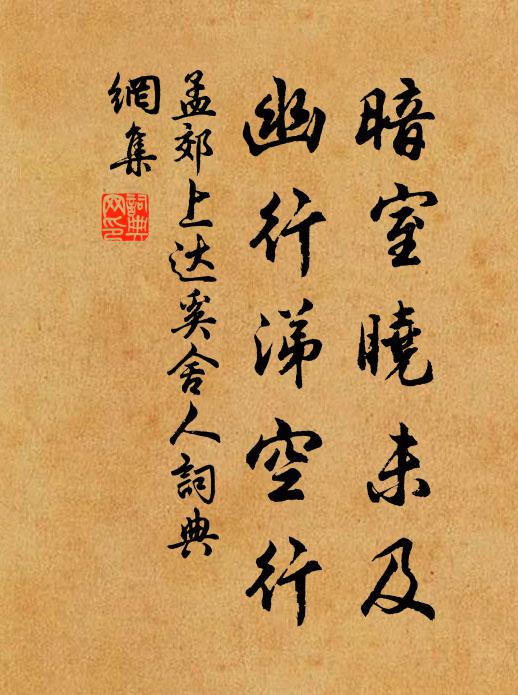 暗室曉未及
幽行涕空行
孟郊上达奚舍人詞典
網集
詞典
网印